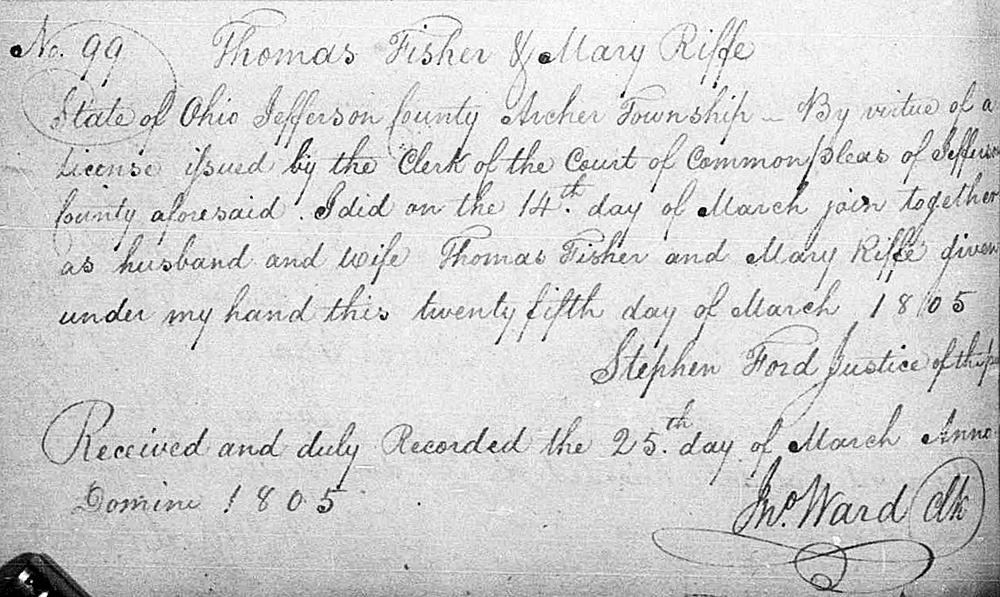 No. 99 Thomas Fisher & Mary Riffe
State of Ohio Jefferson County Archer Township — By virtue of a
License issued by the Clerk of the Court of Common pleas of Jefferson
County aforesaid . I did on the 14th. day of March join together
as husband and wife Thomas Fisher and Mary Riffe given
under my hand this twenty fifth day of March 1805
Stephen Ford Justice of the
Received and duly Recorded the 25th. day of March Anno
Domini 1805
Jno. Ward Clk